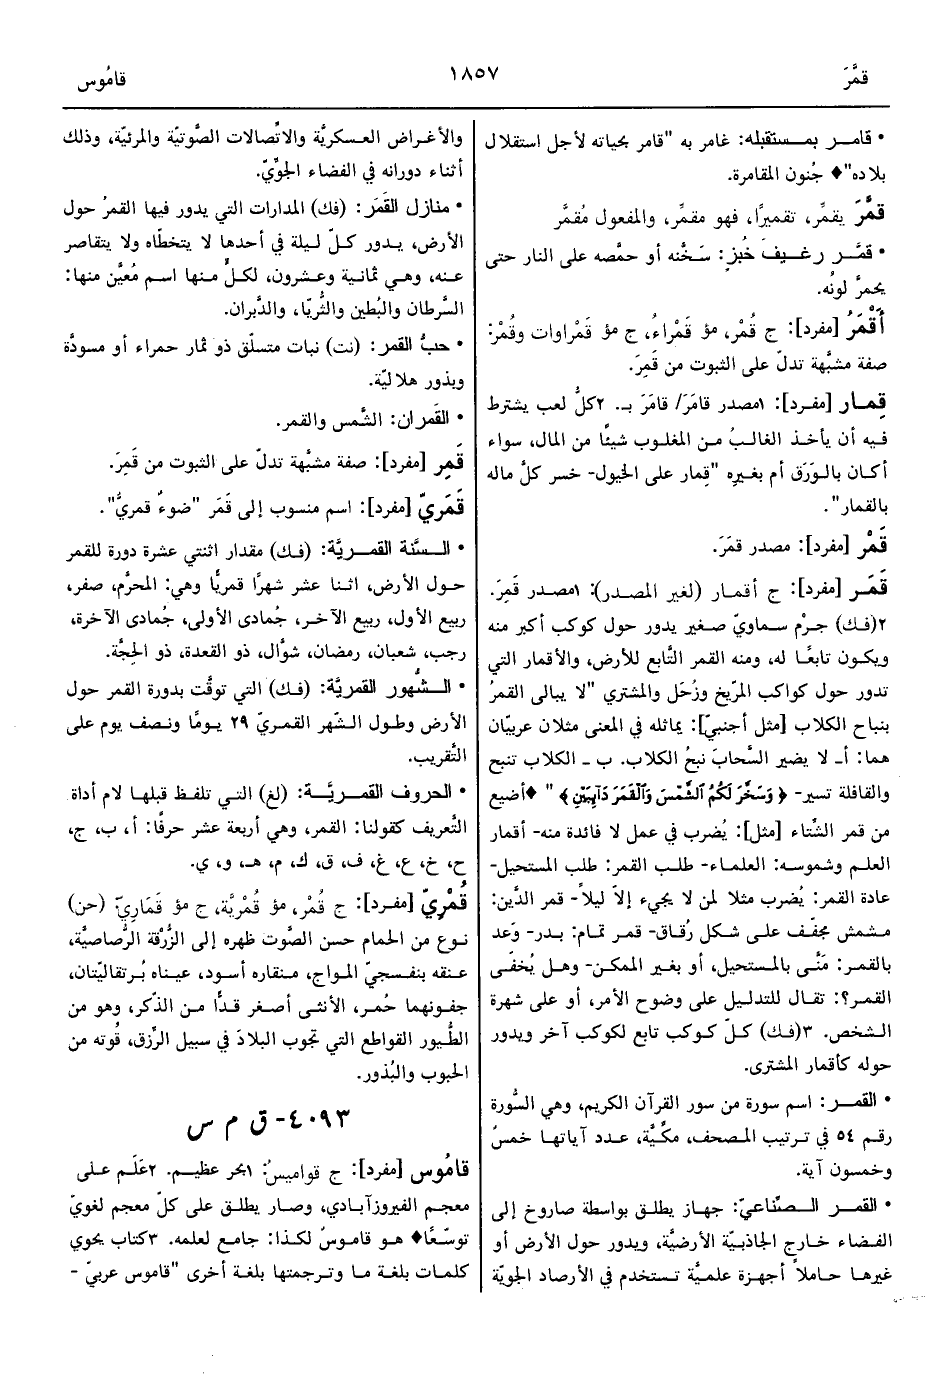 قمَّرَ
١٨٥٧
قامُوس
• قامـر بمـستقبله: غامر به "قامر بحياته لأجل استقلال
بلاده"♦ جُنون المقامرة.
قمَّرَ يقمِّر، تقميرًا، فهو مقمِّر، والمفعول مُقمَّر
• قمَّـر رغـيـفَ خُبزٍ: سَخَّنه أو حمَّصه على النار حتى
يحمرَّ لونُه.
أَقْمَرُ [مفرد]: ج قُمْر، مؤ قَمْراءُ، ج مؤ قَمْراوات وقُمْر:
صفة مشبَّهة تدلّ على الثبوت من قَمِرَ.
قِمـار [مفـرد]: ١مصدر قامَرَ/ قامَرَ بـ. ٢كلُّ لعب يشترط
فيه أن يأخذ الغالبُ مـن المغلوب شيئًا من المال، سواء
أكـان بالـوَرَق أم بغيرِه "قِمار على الخيول- خسر كلَّ ماله
بالقمار".
قَمْر [مفرد]: مصدر قمَرَ.
قَمَـر [مفرد]: ج أقمـار (لغير المصدر): ١مصـدر قَمِرَ.
٢(فـك) جـرْم سـماويّ صـغير يدور حول كوكب أكبر منه
ويكون تابعًـا له، ومنه القمر التَّابع للأرض، والأقمار التي
تدور حول كواكب المرِّيخ وزُحَل والمشتري "لا يبالى القمرُ
بنباح الكلاب [مثل أجنبيّ]: يماثله في المعنى مثلان عربيّان
هما: أـ لا يضير السَّحابَ نبحُ الكلاب. ب ـ الكلاب تنبح
والقافلة تسير- ﴿ وَسَخَّرَ لَكُمُ ٱلشَّمْسَ وَٱلْقَمَرَ دَآئِبَيْنِ ﴾ "♦أضيع
من قمر الشِّتاء [مثل]: يُضرب في عمل لا فائدة منه- أقمار
العلـم وشموسـه: العلمـاء- طلـب القمر: طلب المستحيل-
عادة القمر: يُضرب مثلا لمن لا يجيء إلاّ ليلاً- قمر الدِّين:
مـشمش مجفّف على شكل رُقـاق- قمـر تـمام: بدر- وَعَد
بالقمر: مَنَّى بالمستحيل، أو بغير الممكن- وهـل يُخفَى
القمر؟: تقال للتدليل على وضوح الأمر، أو على شهرة
الشخص. ٣(فـك) كـلّ كـوكب تابع لكوكب آخر ويدور
حوله كأقمار المشترى.
• القمـر: اسم سورة من سور القرآن الكريم، وهي السُّورة
رقـم ٥٤ في تـرتيب المـصحف، مكِّيَّة، عـدد آياتهـا خمسٌ
وخمسون آية.
• القمـر الـصِّناعيّ: جهـاز يطلـق بواسطة صاروخ إلى
الفـضاء خـارج الجاذبيَّة الأرضيَّة، ويدور حول الأرض أو
غيرهـا حـاملاً أجهـزة علميَّة تـستخدم في الأرصاد الجويَّة
والأغـراض العـسكريَّة والاتِّصالات الصَّوتيَّة والمرئيَّة، وذلك
أثناء دورانه في الفضاء الجوِّيّ.
• منازل القَمَر: (فك) المدارات التي يدور فيها القمرُ حول
الأرض، يـدور كـلّ لـيلة في أحدهـا لا يتخطّاه ولا يتقاصر
عـنه، وهـي ثمانية وعشرون، لكلٍّ مـنها اسـم مُعيَّن منها:
السَّرطان والبُطين والثُّريّا، والدَّبران.
• حبُّ القمر: (نت) نبات متسلّق ذو ثمار حمراء أو مسودَّة
وبذور هلاليّة.
• القَمران: الشَّمس والقمر.
قَمِر [مفرد]: صفة مشبَّهة تدلّ على الثبوت من قَمِرَ.
قَمَريّ [مفرد]: اسم منسوب إلى قَمَر "ضوءٌ قمريٌّ".
• الـسَّنة القمـريَّة: (فـك) مقدار اثنتي عشرة دورة للقمر
حـول الأرض، اثـنا عـشر شـهرًا قمـريًّا وهي: المحرَّم، صفر،
ربيع الأول، ربيع الآخـر، جُمادى الأولى، جُمادى الآخرة،
رجب، شعبان، رمضان، شوَّال، ذو القعدة، ذو الحِجَّة.
• الـشُّهور القمريَّة: (فـك) التي توقَّت بدورة القمر حول
الأرض وطـول الـشَّهر القمـريّ ٢٩ يـومًا ونـصف يوم على
التَّقريب.
• الحـروف القمـريَّـة: (لغ) التـي تلفـظ قبلهـا لام أداة
التَّعريف كقولنـا: القمر، وهي أربعـة عشر حرفًا: أ، ب، ج،
ح، خ، ع، غ، ف، ق، ك، م، هـ، و، ي.
قُمْرِيّ [مفـرد]: ج قُمْر، مؤ قُمْريَّة، ج مؤ قَمَاريّ: (حن)
نـوع من الحمام حسن الصَّوت ظهره إلى الزُّرقة الرَّصاصيَّة،
عنقه بنفسجيّ المـواج، مـنقاره أسـود، عيـناه بُـرتقاليّتان،
جفـونهما حُمـر، الأنثـى أصـغر قـدًّا مـن الذَّكر، وهو من
الطُّيور القواطع التي تجوب البلادَ في سبيل الرِّزق، قُوته من
الحبوب والبُذور.
٤٠٩٣- ق م س
قامُوس [مفرد]: ج قواميسُ: ١بحر عظيـم. ٢عَلَـم علـى
معجـم الفيروزآبـادي، وصـار يطلـق على كلّ معجم لغويّ
توسّعًا♦ هـو قامـوسٌ لكـذا: جامـع لعلمه. ٣كتاب يحوي
كلمات بلغـة ما وترجمتهـا بلغة أخرى "قاموس عربيّ -